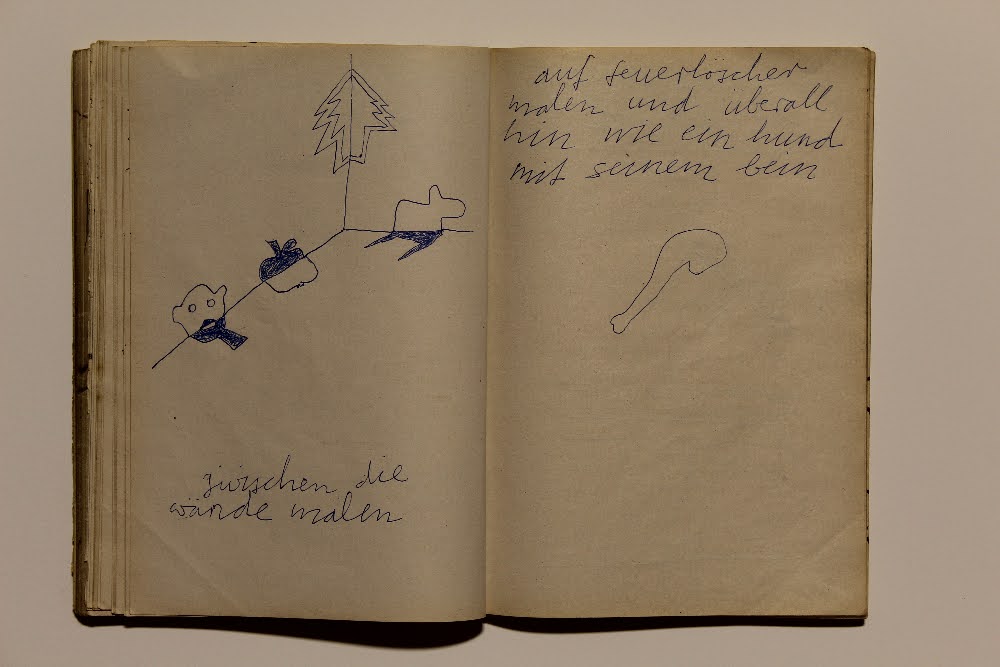 zwischen die
wände malen
auf feuerlöscher
malen und überall
hin wie ein hund
mit seinem bein